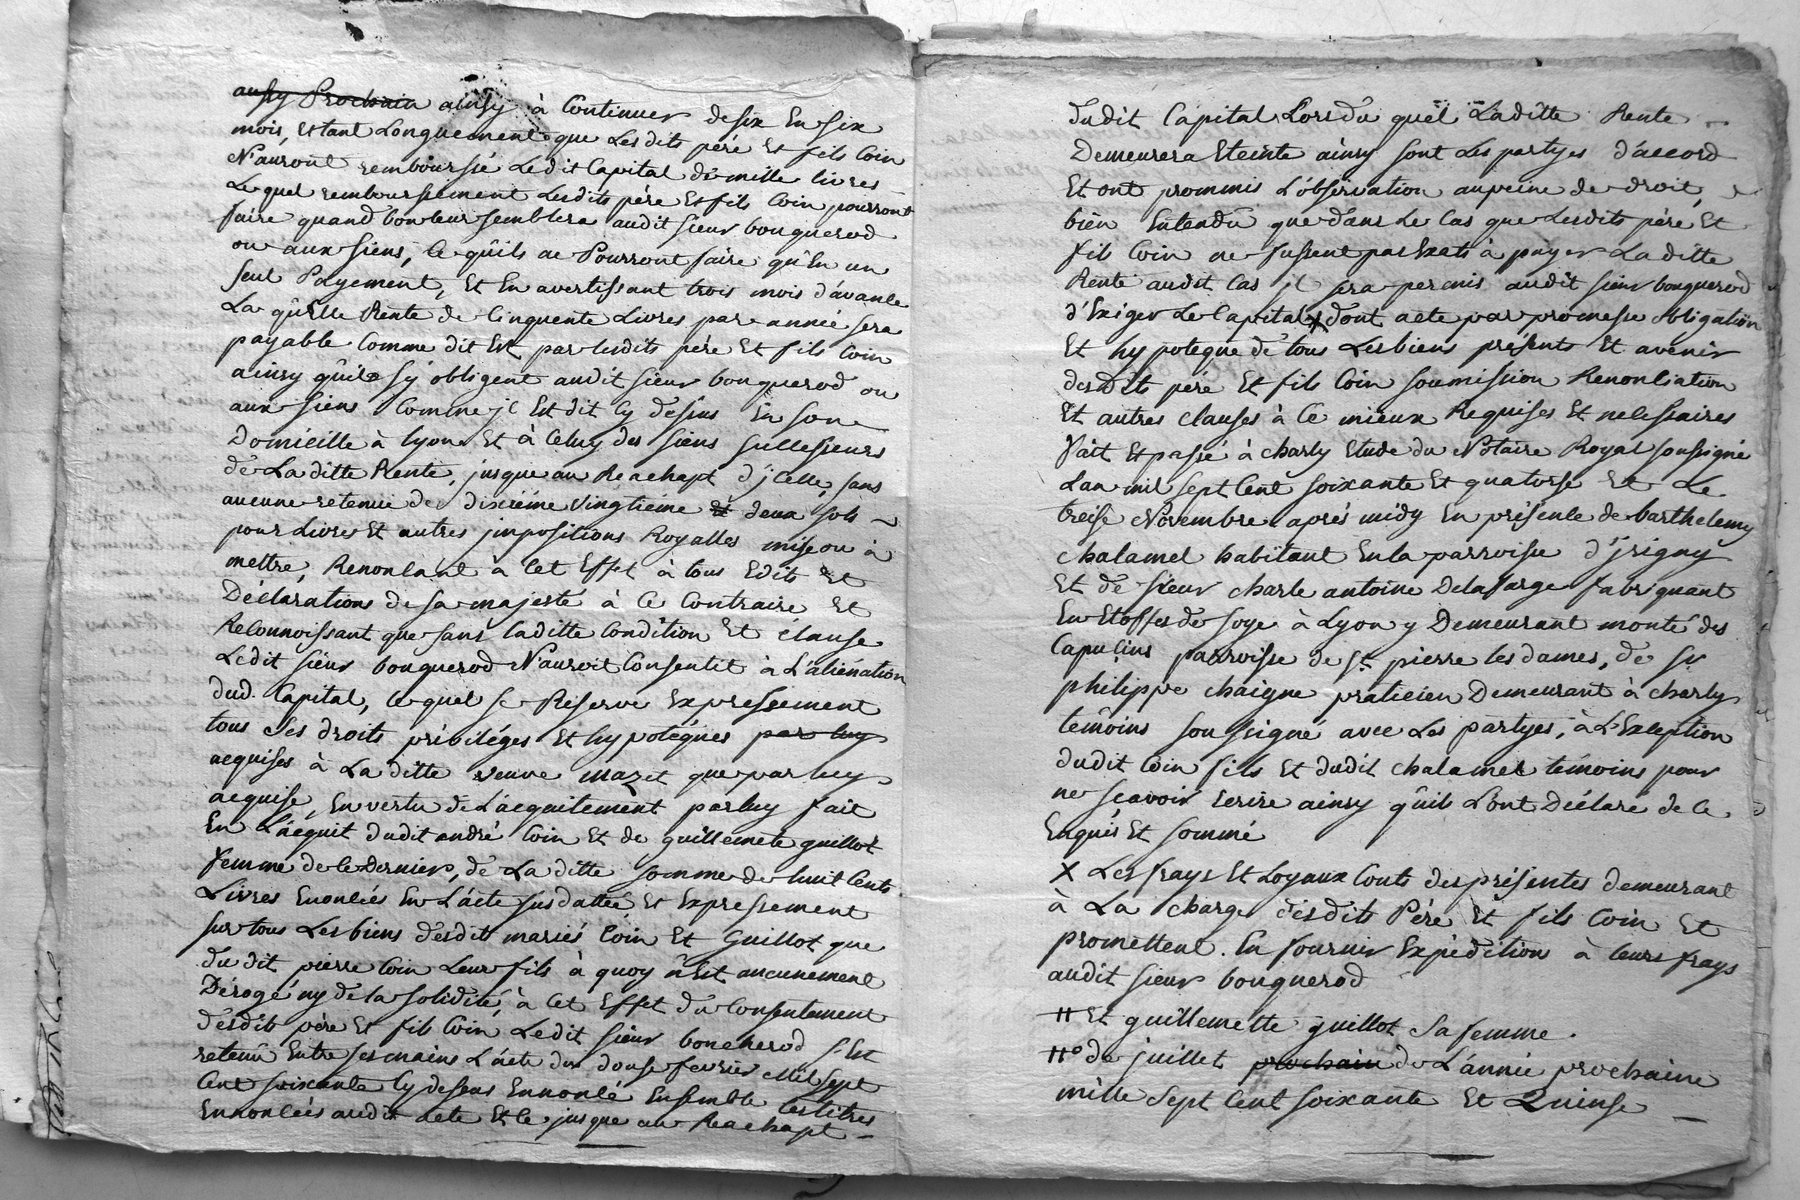 aussy Prochain ainsy à Continuer de six En six
mois, Estant Longuement que Lesdits pére Et fils Coin
N'auront remboursié Ledit Capital de mille livres
Le quel remboursiement Lesdits pére Et fils Coin pourront
faire quand bon leur semblera audit sieur bouquerod
ou aux siens, Ce qûils ne Pourront faire qu'En un
seul Payement, Et En avertissant trois mois d'avance
La qûelle Rente de Cinquente Livres par année sera
payable Comme dit Est par lesdits pére Et fils Coin
ainsy qûils s'y obligent audit sieur bouquerod ou
aux siens Comme jl Est dit Cy dessus En son
Domicille à Lyon Et à Celuy des siens sucesseurs
de La ditte Rente, jusque au Reachapt d'jCelle, sans
aucune retenüe de dixiéme Vingtiéme et deux sols
pour Livre Et autres jmpositions Royalles mise ou à
mettre, Renonçant à Cet Effet à tous Edits Et
Déclarations de sa majesté à Ce Contraire Et
Reconnoissant que sans laditte Condition Et Clause
Ledit sieur bouquerod N'auroit Consentit à L'aliénation
dud. Capital, Lequel se Réserve Expressement
tous Ses droits priviléges Et hypotéques par luy
acquises à La ditte veuve mazet que par luy
acquise, En vertu de L'acquitement par luy fait
En L'acquit dudit andré Coin Et de guillemete guillot
femme de Ce Dernier, de La ditte somme de huit Cents
Livres Enoncés En L'acte susdattée, Et Expressement
sur tous Les biens d'esdits mariés Coin Et Guillot que
du dit pierre Coin Leur fils à quoy n'Est aucunement
Dérogé ny de la solidité, à Cet Effet du Consentement
d'esdits pére Et fils Coin Ledit sieur boucherod s'Est
retenû Entre ses mains L'acte du douse fevrier Mil sept
Cent soixante Cy dessus Ennoncé Ensemble Les titres
Ennoncés audit acte Et Ce jusque au Reachapt
dudit Capital Lorsdu quel Laditte Rente
Demeurera Eteinte ainsy sont Les partyes d'accord
Et ont prommis L'observation aupeine de droit,
bien Entendu que dans Le Cas que Lesdits pére Et
fils Coin ne fussent pas Exats à payer La ditte
Rente audit Cas jl sera permis audit sieur bouquerod
d'Exiger Le Capital X dont acte par promesse obligation
Et hypoteque de tous Les biens présents Et avenir
desdits pére Et fils Coin soumission Renonciation
Et autres clauses à Ce mieux Requises Et necessaires
Fait Et passé à charly Etude du Notaire Royal soussigné
L'an mil sept Cent soixante Et quatorse Et Le
treise Novembre aprés midy En présence de barthelemy
chalamel habitant En la parroisse d'jrigny
Et de sieur charle antoine Delafarge fabriquant
En Etoffes de soye à Lyon y Demeurant monté des
Capucins parroisse de St. pierre les dames, de Sr.
philippe chaigne praticien Demeurant à charly
temoins soussigné avec Les partyes, à L'Exception
dudit Coin fils Et dudit chalamel témoins pour
ne sçavoir Ecrire ainsy qûils L'ont Déclaré de Ce
Enquis Et sommé
X Les frays Et Loyaux Couts des présentes demeurant
à La charge d'esdits Pére Et fils Coin Et
promettent En fournir Expédition à leurs frays
audit sieur bouquerod
# Et guillemette guillot sa femme.
#° de juillet prochain de L'année prochaine
mille sept Cent soixante Et Quinse